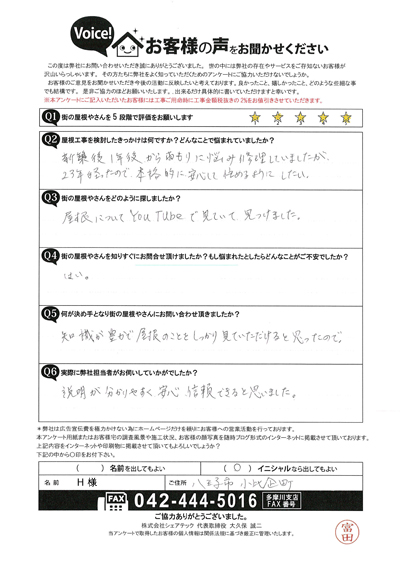 Voice!
お客様の声をお聞かせください
この度は弊社にお問い合わせいただき誠にありがとうございました。世の中には弊社の存在やサービスをご存知ないお客様が
沢山いらっしゃいます。その方たちに弊社をよく知っていただくためのアンケートにご協力いただけないでしょうか。
お客様のご意見をお聞かせいただき今後の活動に反映したいと考えております。良かったこと、嬉しかったこと、どのような些細な事
でも結構です。是非ご協力のほどお願いいたします。出来るだけ具体的に書いていただけますと幸いです。
※本アンケートにご記入いただいたお客様には工事ご完成時に工事金額税抜きの2%をお値引きさせていただきます。
Q1 街の屋根やさんを5段階で評価をお願いします
Q2 屋根工事を検討したきっかけは何ですか？どんなことで悩まれていましたか？
新築後1年後から雨もりに悩み修理していましたが、
23年経ったので、本格的に安心して住めるようにしたい。
Q3 街の屋根やさんをどのように探しましたか？
屋根についてYouTubeで見ていて見つけました。
Q4 街の屋根やさんを知りすぐにお問合せ頂けましたか？もし悩まれたとしたらどんなことがご不安でしたか？
はい。
Q5 何が決め手となり街の屋根やさんにお問い合わせ頂きましたか？
知識が豊かで屋根のことをしっかり見ていただけると思ったので。
Q6 実際に弊社担当者がお伺いしていかがでしたか？
説明が分かりやすく、安心信頼できると思いました。
＊弊社は広告宣伝費を極力かけない為にホームページだけを頼りにお客様への営業活動を行っております。
本アンケート用紙またはお客様宅の調査風景や施工状況、お客様の顔写真を随時ブログ形式のインターネットに掲載させて頂いております。
上記内容をインターネットや印刷物に掲載させて頂いてもよろしいでしょうか？
下記の中から○印をお付下さい。
（　）名前を出してもよい （○）イニシャルなら出してもよい
名前 H様 ご住所 八王子市小比企町
FAX 042-444-5016 多摩川支店 FAX番号
ご協力ありがとうございました。
株式会社シェアテック 代表取締役 大久保 誠二
当アンケートで取得したお客様の個人情報は関係法規に基づき厳正に管理いたします。
富田